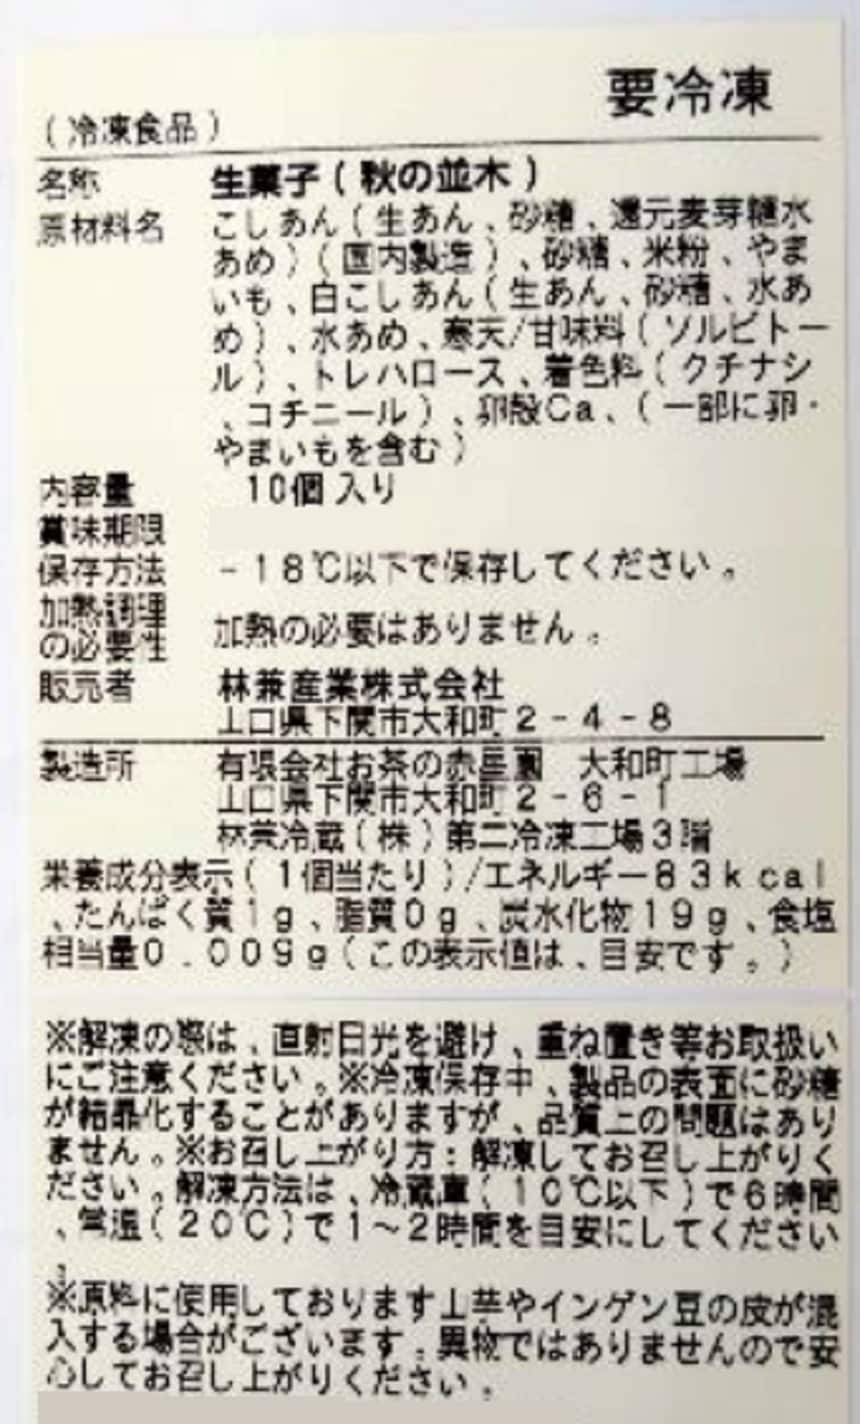 要冷凍
(冷凍食品)
名称 生菓子(秋の並木)
原材料名 こしあん(生あん、砂糖、還元麦芽糖水
あめ)(国内製造)、砂糖、米粉、やま
いも、白こしあん(生あん、砂糖、水あ
め)、水あめ、寒天/甘味料(ソルビトー
ル)、トレハロース、着色料(クチナシ
、コチニール)、卵殻Ca、(一部に卵・
やまいもを含む)
内容量 10個入り
賞味期限
保存方法 -18℃以下で保存してください。
加熱調理
の必要性 加熱の必要はありません。
販売者 林兼産業株式会社
山口県下関市大和町2-4-8
製造所 有限会社お茶の赤星園 大和町工場
山口県下関市大和町2-6-1
林兼冷蔵(株)第二冷凍工場3階
栄養成分表示(1個当たり)/エネルギー83kcal
、たんぱく質1g、脂質0g、炭水化物19g、食塩
相当量0.009g(この表示値は、目安です。)
※解凍の際は、直射日光を避け、重ね置き等お取扱い
にご注意ください。※冷凍保存中、製品の表面に砂糖
が結晶化することがありますが、品質上の問題はあり
ません。※お召し上がり方:解凍してお召し上がりく
ださい。解凍方法は、冷蔵庫(10℃以下)で6時間
、常温(20℃)で1~2時間を目安にしてください
。
※原料に使用しております山芋やインゲン豆の皮が混
入する場合がございます。異物ではありませんので安
心してお召し上がりください。